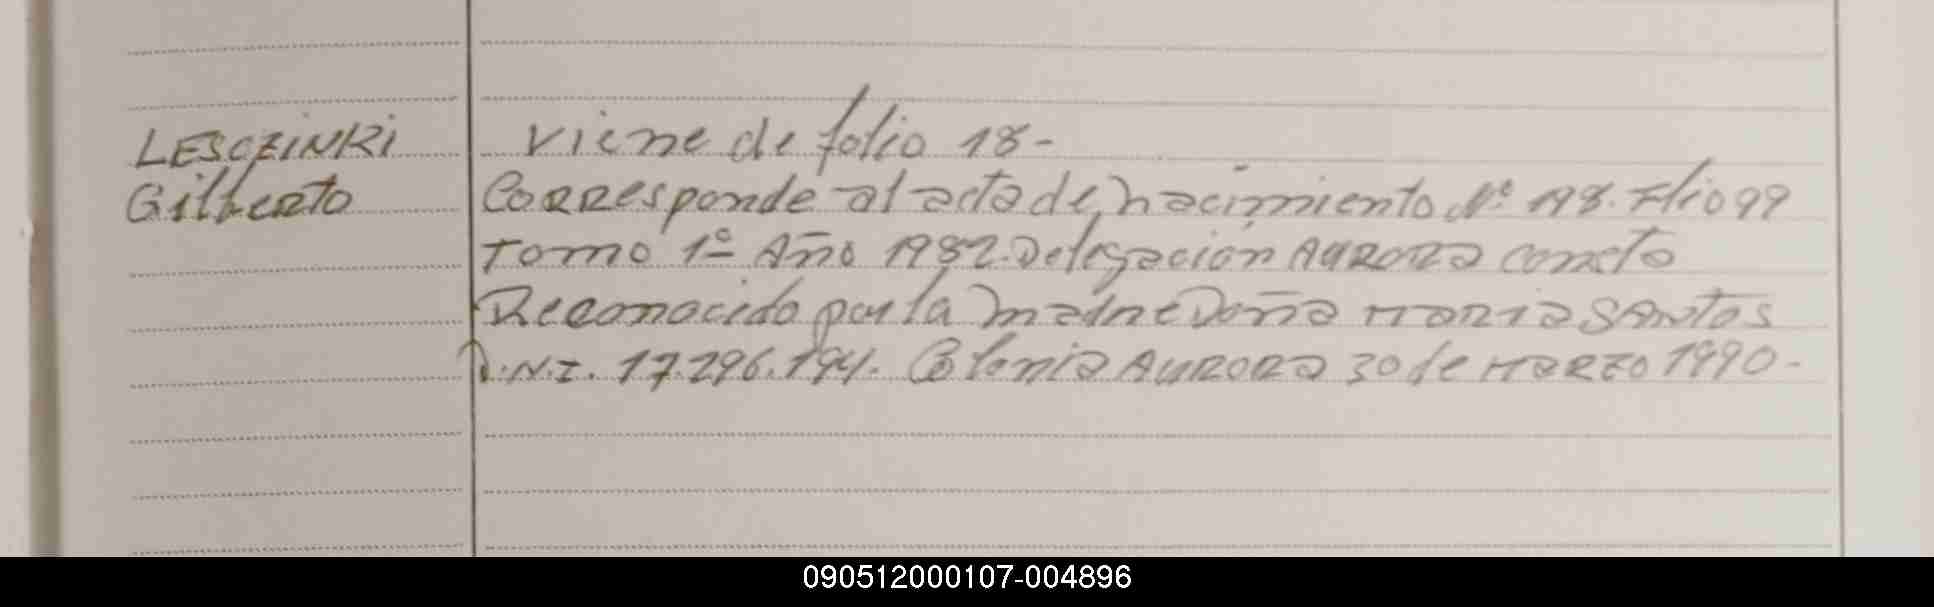 LESCZINKI
Gilberto
Viene de folio 18-
Corresponde al acta de nacimiento Nº 198. Flio 99
Tomo 1º Año 1982. Delegación AURORA consta
Reconocido por la madre Doña MARIA SANTOS
D.N.I. 17.296.194. Colonia AURORA 30 de MARZO 1990-
090512000107-004896